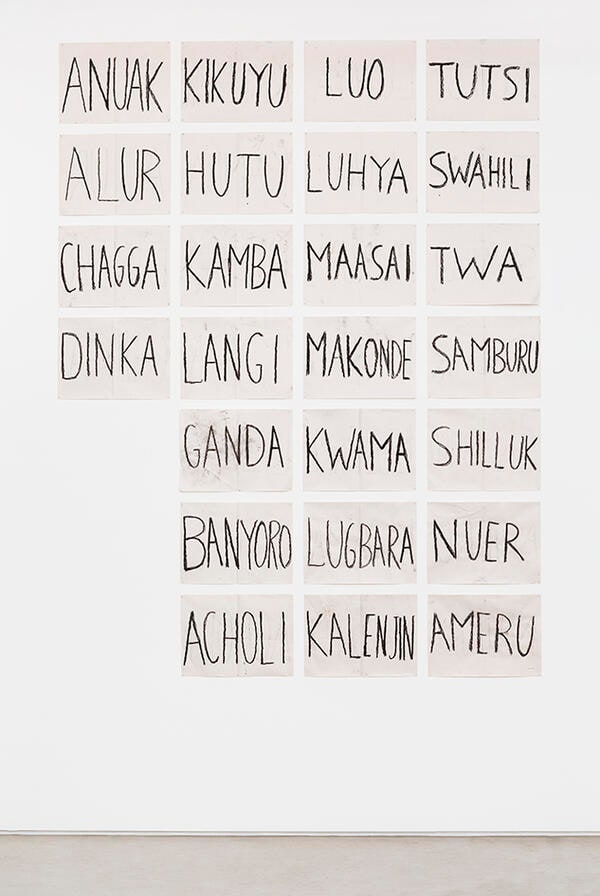 ANUAK KIKUYU LUO TUTSI
ALUR HUTU LUHYA SWAHILI
CHAGGA KAMBA MAASAI TWA
DINKA LANGI MAKONDE SAMBURU
GANDA KWAMA SHILLUK
BANYORO LUGBARA NUER
ACHOLI KALENJIN AMERU